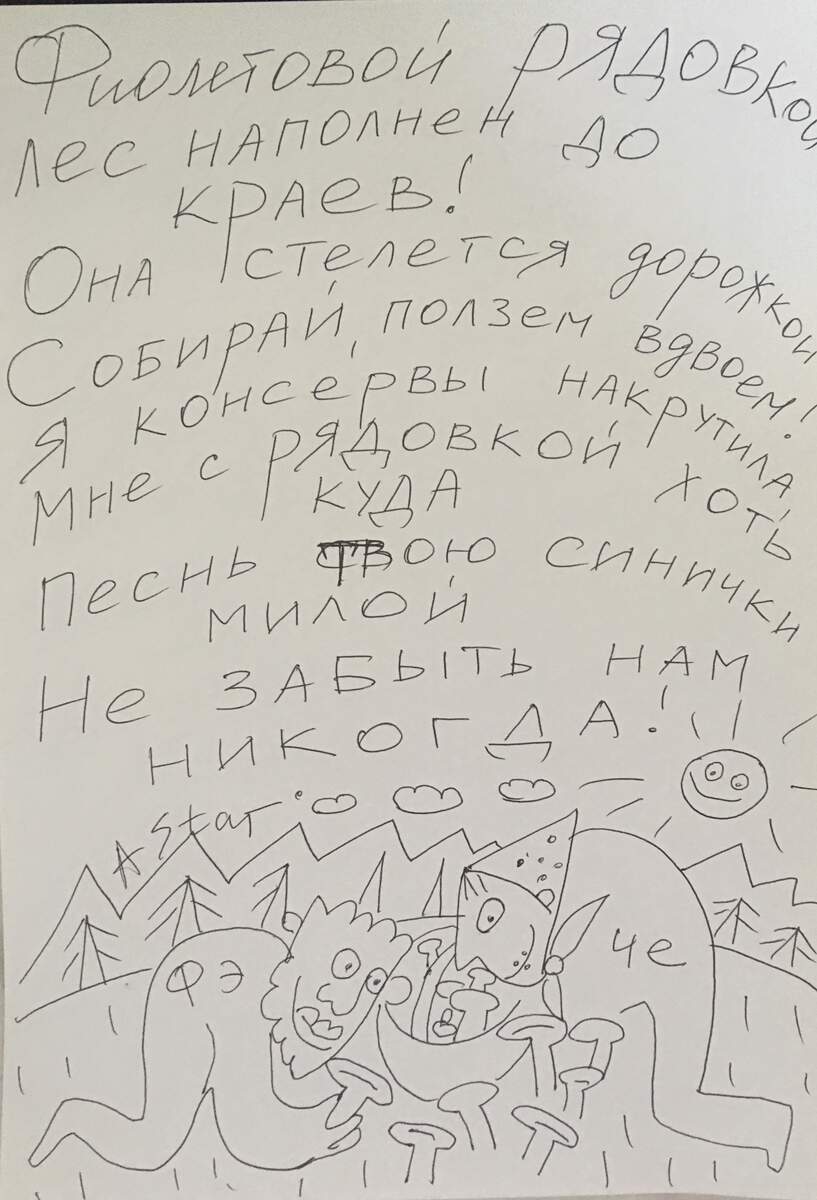 Фиолетовой рядовкой
лес наполнен до
краев!
Она стелется дорожкой
Собирай, ползем вдвоем!
Я консервы накрутила
Мне с рядовкой хоть
куда
Песнь твою синички
милой
Не забыть нам
никогда!
A Star
ФЭ
Че